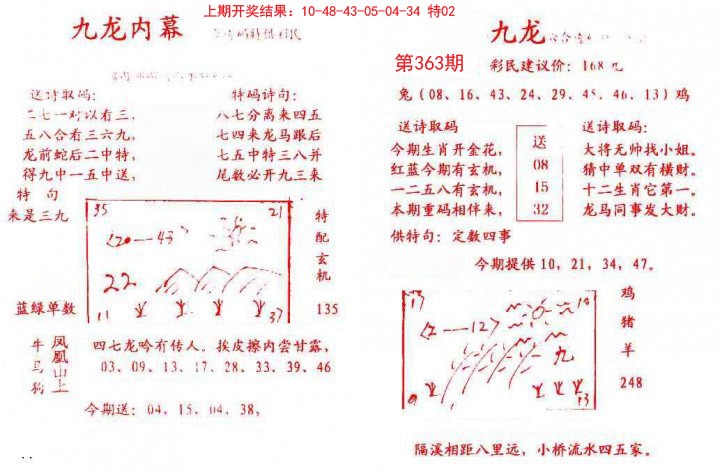 上期开奖结果：10-48-43-05-04-34 特02
九龙内幕
送诗取码：
二七一对以看三，
五八合看三六九，
龙前蛇后二中特，
得九中一五中送，
特码诗句：
八七分离来四五
七四来龙马跟后
七五中特三八并
尾数必开九三来
特 句
来是三九
35 21
20—43
22
11 37
特配玄机
135
蓝绿单数
牛马狗
凤凰山上
四七龙吟有传人。挨皮擦内尝甘露，
03、09、13、17、28、33、39、46
今期送：04，15、04、38，
九龙
第363期
彩民建议价：168元
兔（08、16、43、24、29、45、46、13）鸡
送诗取码
今期生肖开金花，
红蓝今期有玄机，
一二五八有玄机，
本期重码相伴来，
送
08
15
32
送诗取码：
大将无帅找小姐。
猜中单双有横财。
十二生肖它第一。
龙马同事发大财。
供特句：定数四事
今期提供10，21，34，47。
17 10
2—12
九
9 13
鸡
猪
羊
248
隔溪相距八里远，小桥流水四五家。